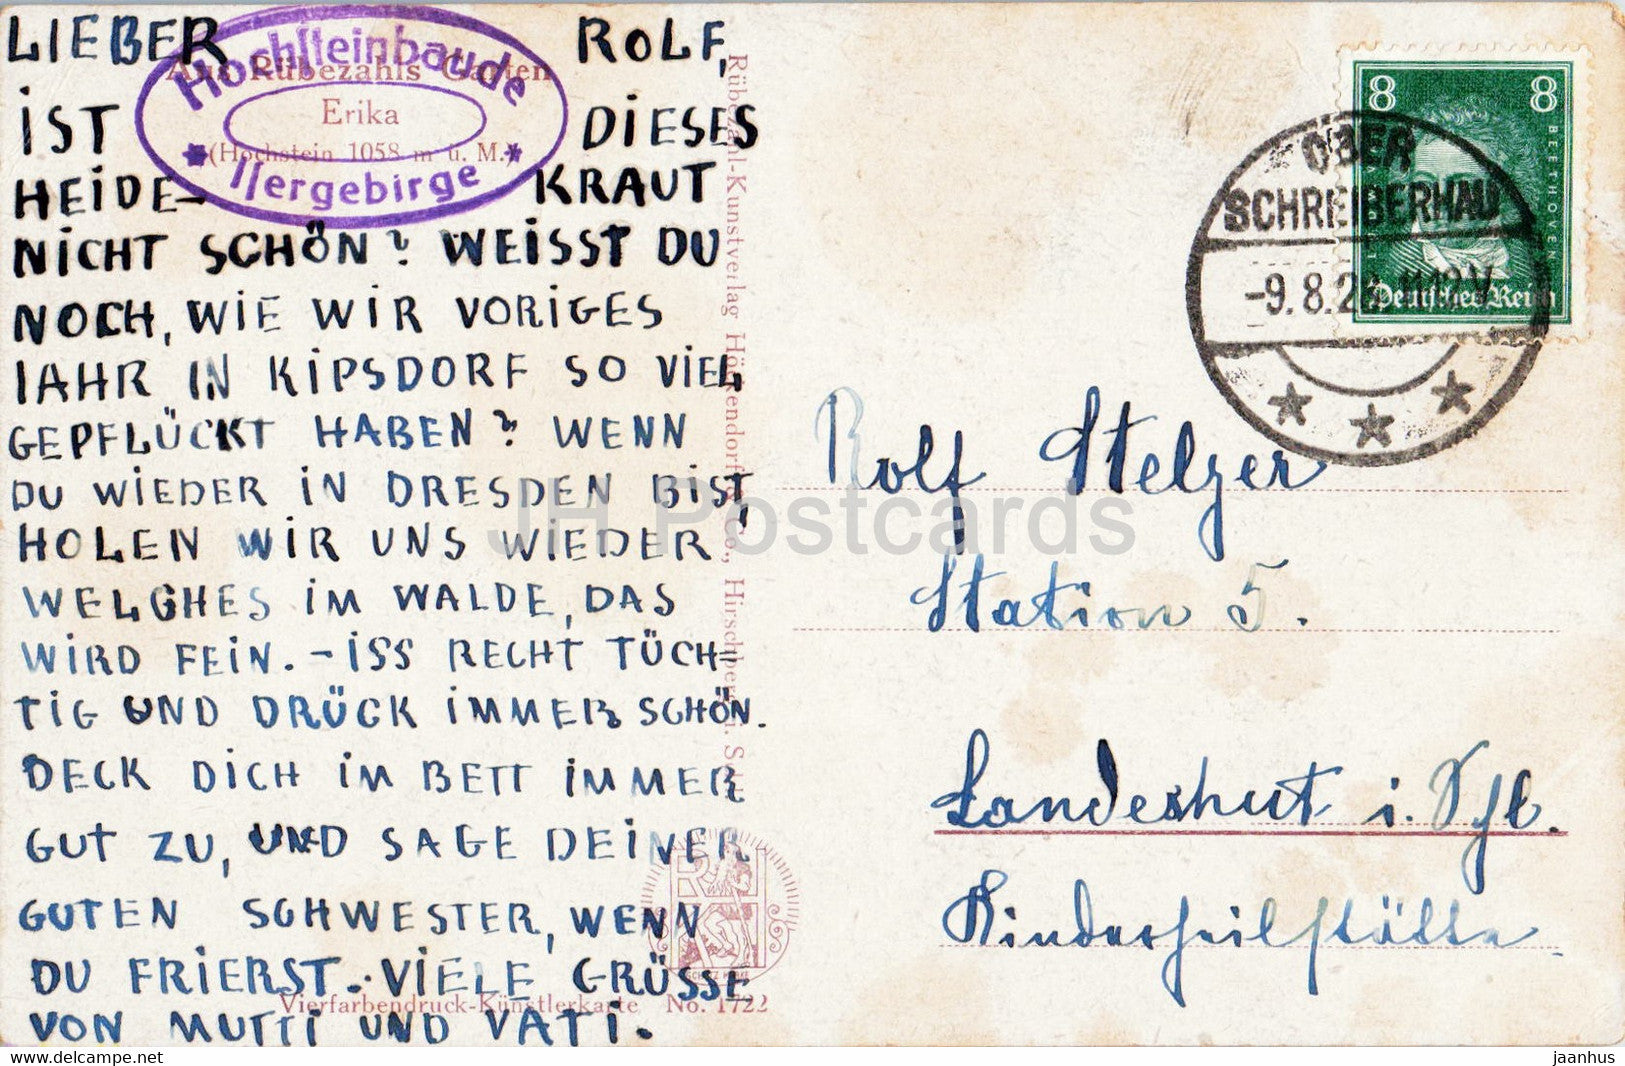 LIEBER ROLF,
IST DIESES
HEIDE- KRAUT
NICHT SCHÖN? WEISST DU
NOCH, WIE WIR VORIGES
IAHR IN KIPSDORF SO VIEL
GEPFLÜCKT HABEN? WENN
DU WIEDER IN DRESDEN BIST,
HOLEN WIR UNS WIEDER
WELCHES IM WALDE, DAS
WIRD FEIN. - ISS RECHT TÜCH=
TIG UND DRÜCK IMMER SCHÖN.
DECK DICH IM BETT IMMER
GUT ZU, UND SAGE DEINER
GUTEN SCHWESTER, WENN
DU FRIERST. VIELE GRÜSSE
VON MUTTI UND VATI.
Aus Rübezahls Garten
Erika
(Hochstein 1058 m ü. M.)
Hochsteinbaude
* Isergebirge *
Rübezahl-Kunstverlag Höckendorf & Co., Hirschberg i. Schl.
Vierfarbendruck-Künstlerkarte No. 1722
8 8
BEETHOVEN
Deutsches Reich
OBER
SCHREIBERHAU
-9.8.2 11-12 V.
Rolf Stelzer
Station 5.
Landeshut i. Schl.
Kinderheilstätte
JH Postcards
HipPostcard.com
jaanhus